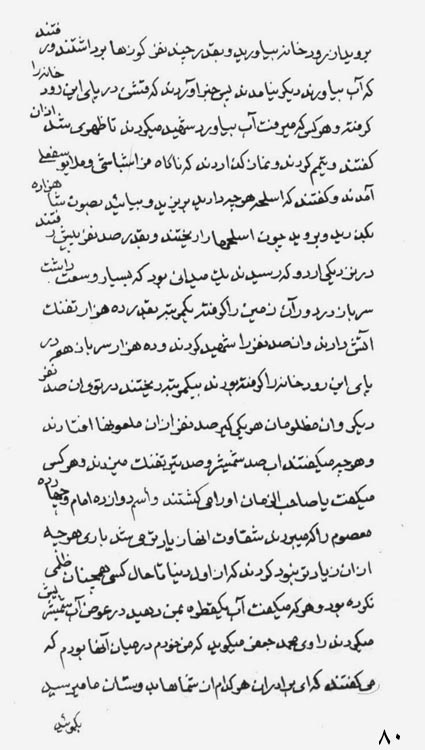 بروید از رودخانه بیاورید و بقدر چند نفر کوزها برداشتند و رفتند
که آب بیاورند دیگر نیامدند پس خبر آوردند که قشن در پای این رودخانه را
گرفته و هر کس که میرفت آب بیاورد شهید میکردند تا ظهری شد از ان
گفتند و تیمم کردند و نماز گذاردند که ناگاه
آمدند و گفتند که اسلحه هر چه دارید بریزید و بیائید بصوت شاهزاده
بگذرید و بروید چون اسلحها را ریختند و بقدر صد نفر پیش رفتند
در نزدیکی اردو که رسیدند یک میدانی بود که بسیار وسعت داشت
سرباز در دور آن زمین را گرفته یکمرتبه بقدر ده هزار تفنگ
آتش دادند و ان صد نفر را شهید کردند و ده هزار سرباز هم در
پای این رودخانه را گرفته بودند بیکمرتبه ریختند در توی ان صد نفر
دیگر و ان مظلومان هر یکی گیر صد نفر از ان ملعونها افتادند
و هر چه میگفتند اب صد شمشیر و صد تیر تفنگ میزدند و هر کس
میگفت یا صاحب الزمان او را می کشتند و اسم دوازده امام و چهارده
معصوم را که میبردند شقاوت انها زیادتر می شد باری هر چه
از ان زیادتر نبود کردند که از اول دنیا تا حال کسی همچنان ظلمی
نکرده بود و هر که میگفت آب یکقطره بمن دهید در عوض آب شمشیر پیش
میکردند راوی محمد جعفر میگوید که من خودم در میان آنها بودم که
می گفتند که ای برادران هر کدام ان شماها به وستان ما میرسید
بگوئید
۸۰